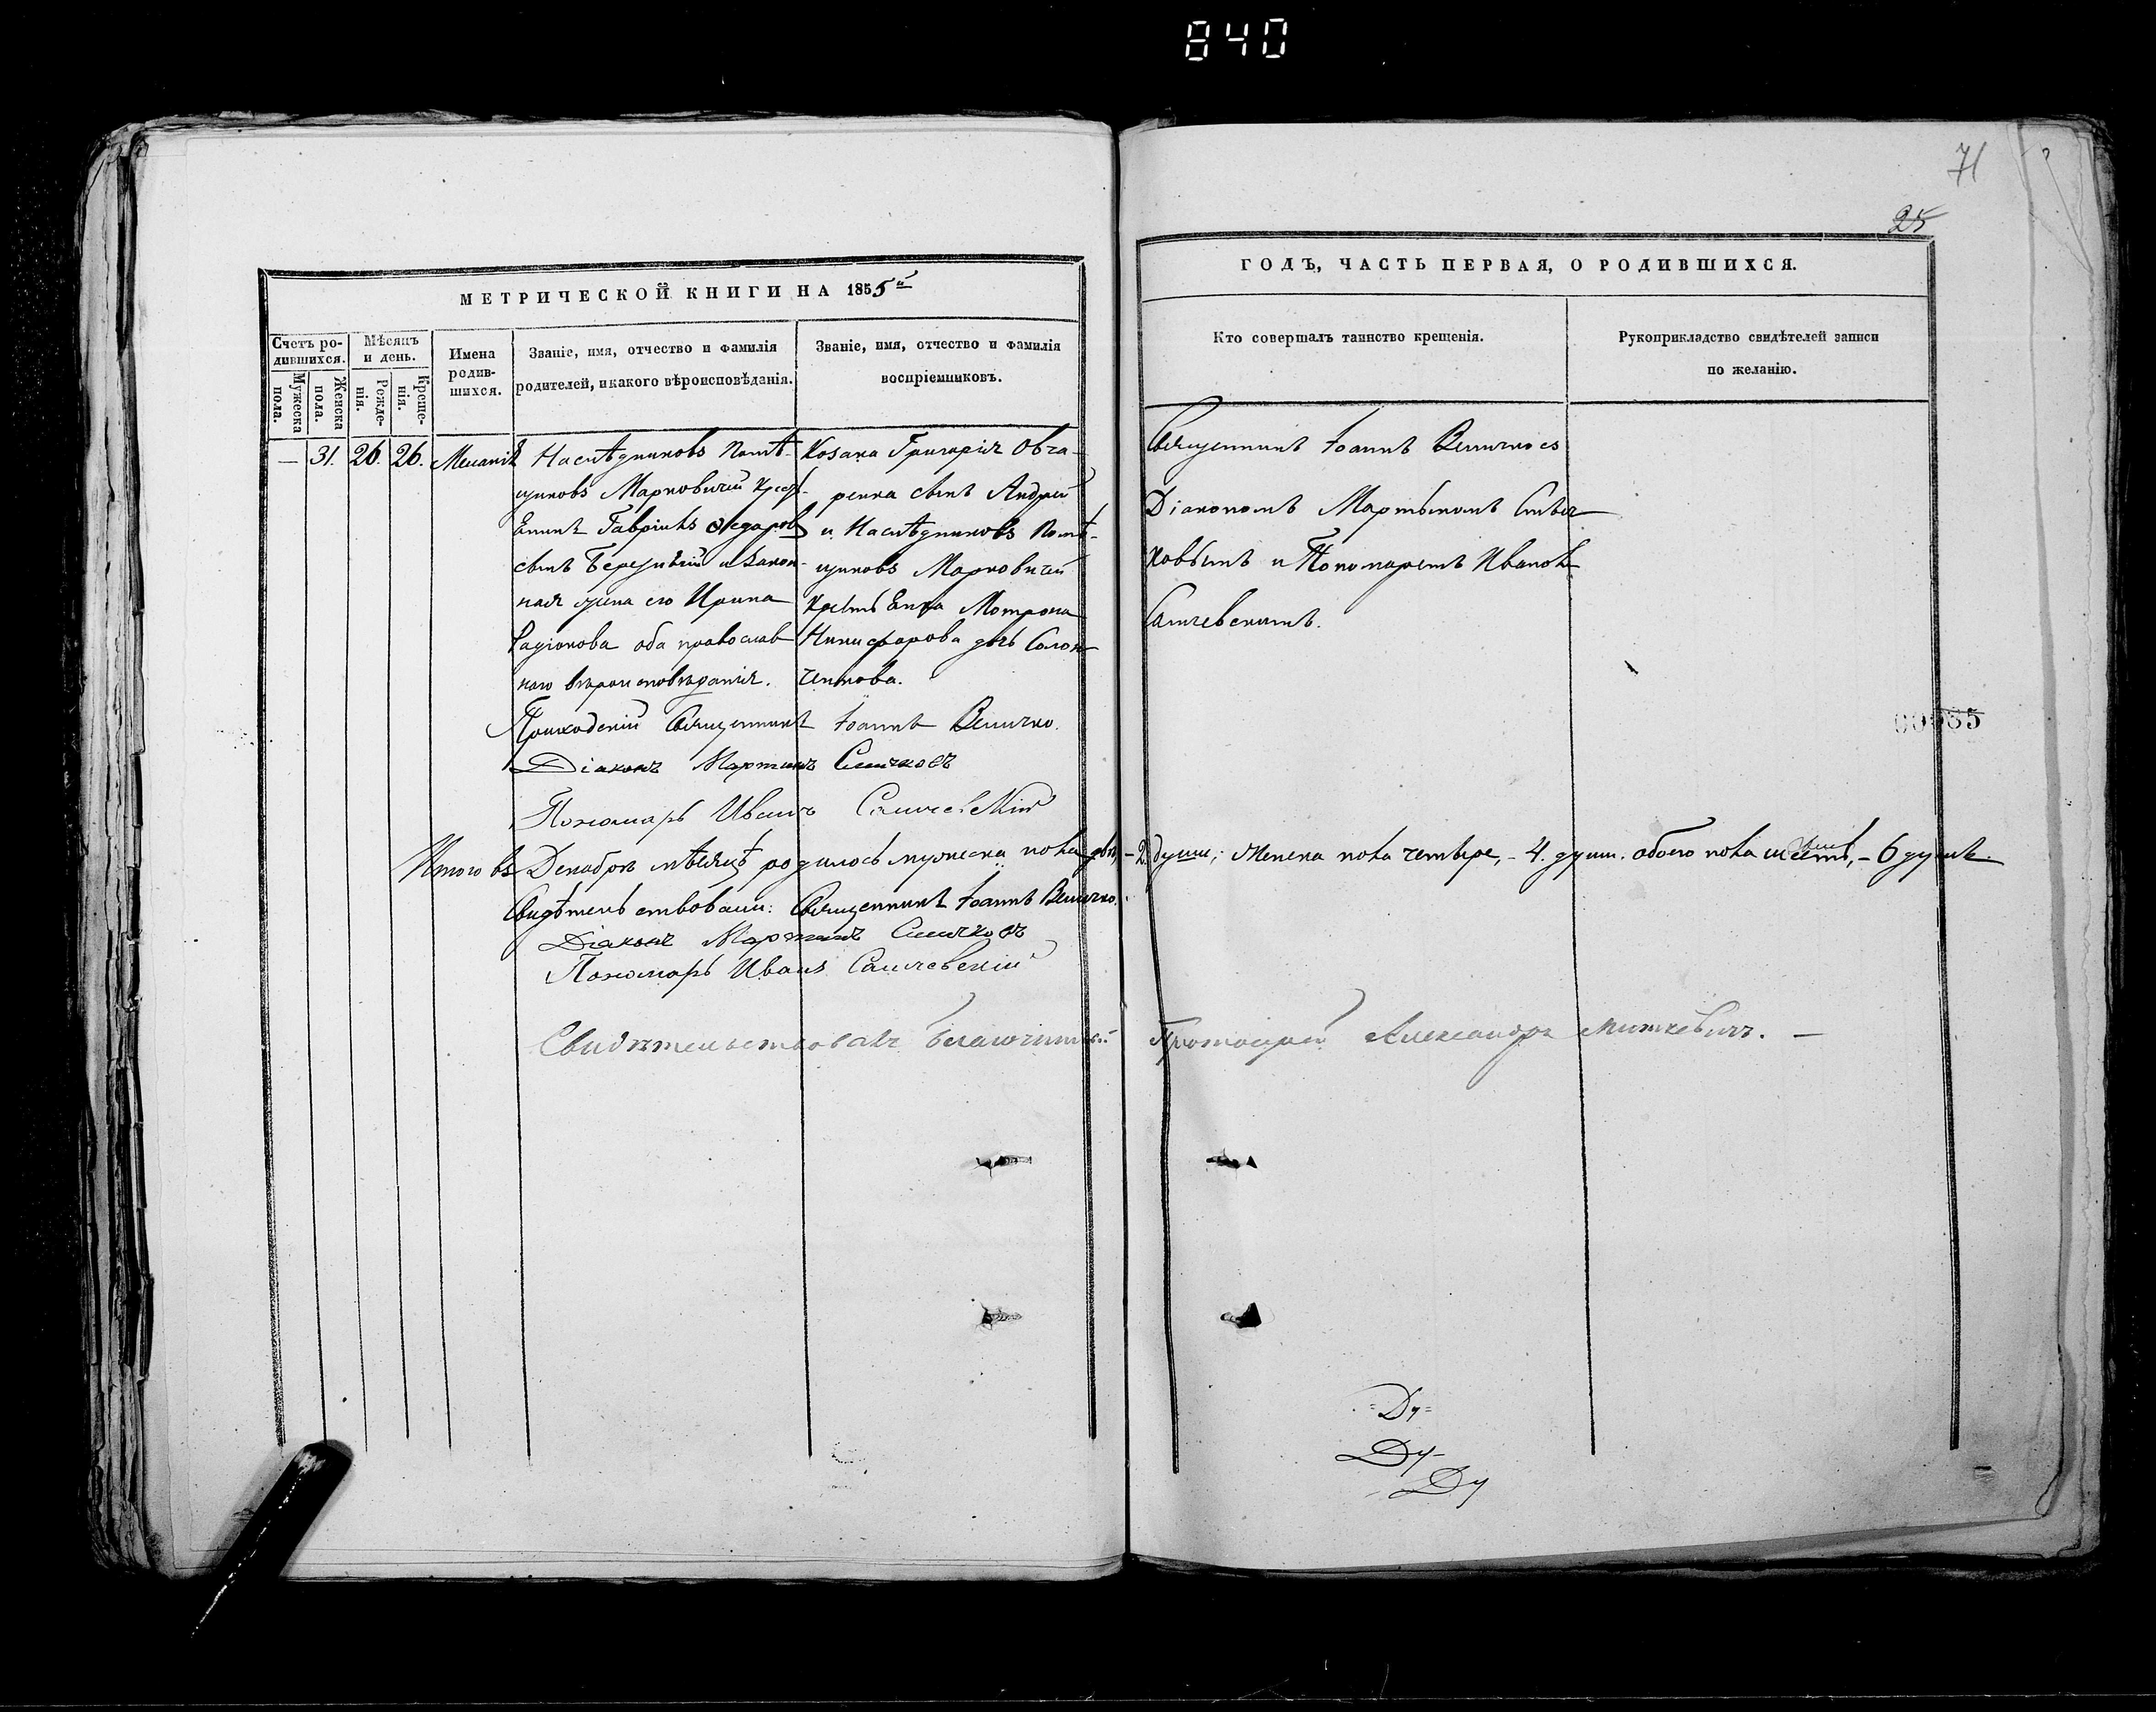 840
71
25
МЕТРИЧЕСКОЙ КНИГИ НА 1855й
ГОДЪ, ЧАСТЬ ПЕРВАЯ, О РОДИВШИХСЯ.
Счетъ ро-
дившихся.
Мужеска
пола.
Женска
пола.
Мѣсяцъ
и день.
Рожде-
нія.
Креще-
нія.
Имена
родив-
шихся.
Званіе, имя, отчество и фамилія
родителей, и какого вѣроисповѣданія.
Званіе, имя, отчество и фамилія
воспріемниковъ.
Кто совершалъ таинство крещенія.
Рукоприкладство свидѣтелей записи
по желанію.
— 31. 26. 26.
Наслѣдниковъ Помѣ-
щиковъ Марковичей Крест-
Гавріилъ Ѳедоровъ
сынъ и закон-
ная жена его Ирина
Радіонова оба православ
наго вѣроисповѣданія.
Козака Григорія Овча-
ренка сынъ Андрей
и Наслѣдниковъ Помѣ-
щиковъ Марковичей
Мотрона
Никифорова дочь
Священникъ Іоаннъ Величко съ
Діакономъ Мартыномъ
и Пономаремъ Иваномъ
Приходскій Священникъ Іоаннъ Величко.
Діаконъ Мартинъ
Пономарь Иванъ
00535
Итого въ Декабрѣ мѣсяцѣ родилось мужеска пола двѣ, – 2. души; Женска пола четыре, – 4. души. обоего пола шесть, – 6 душъ
Свидѣтельствовали: Священникъ Іоаннъ Величко.
Діаконъ Мартинъ
Пономарь Иванъ
Свидѣтельствовалъ Благочинный Протоіерей Александръ Миткевичъ. –